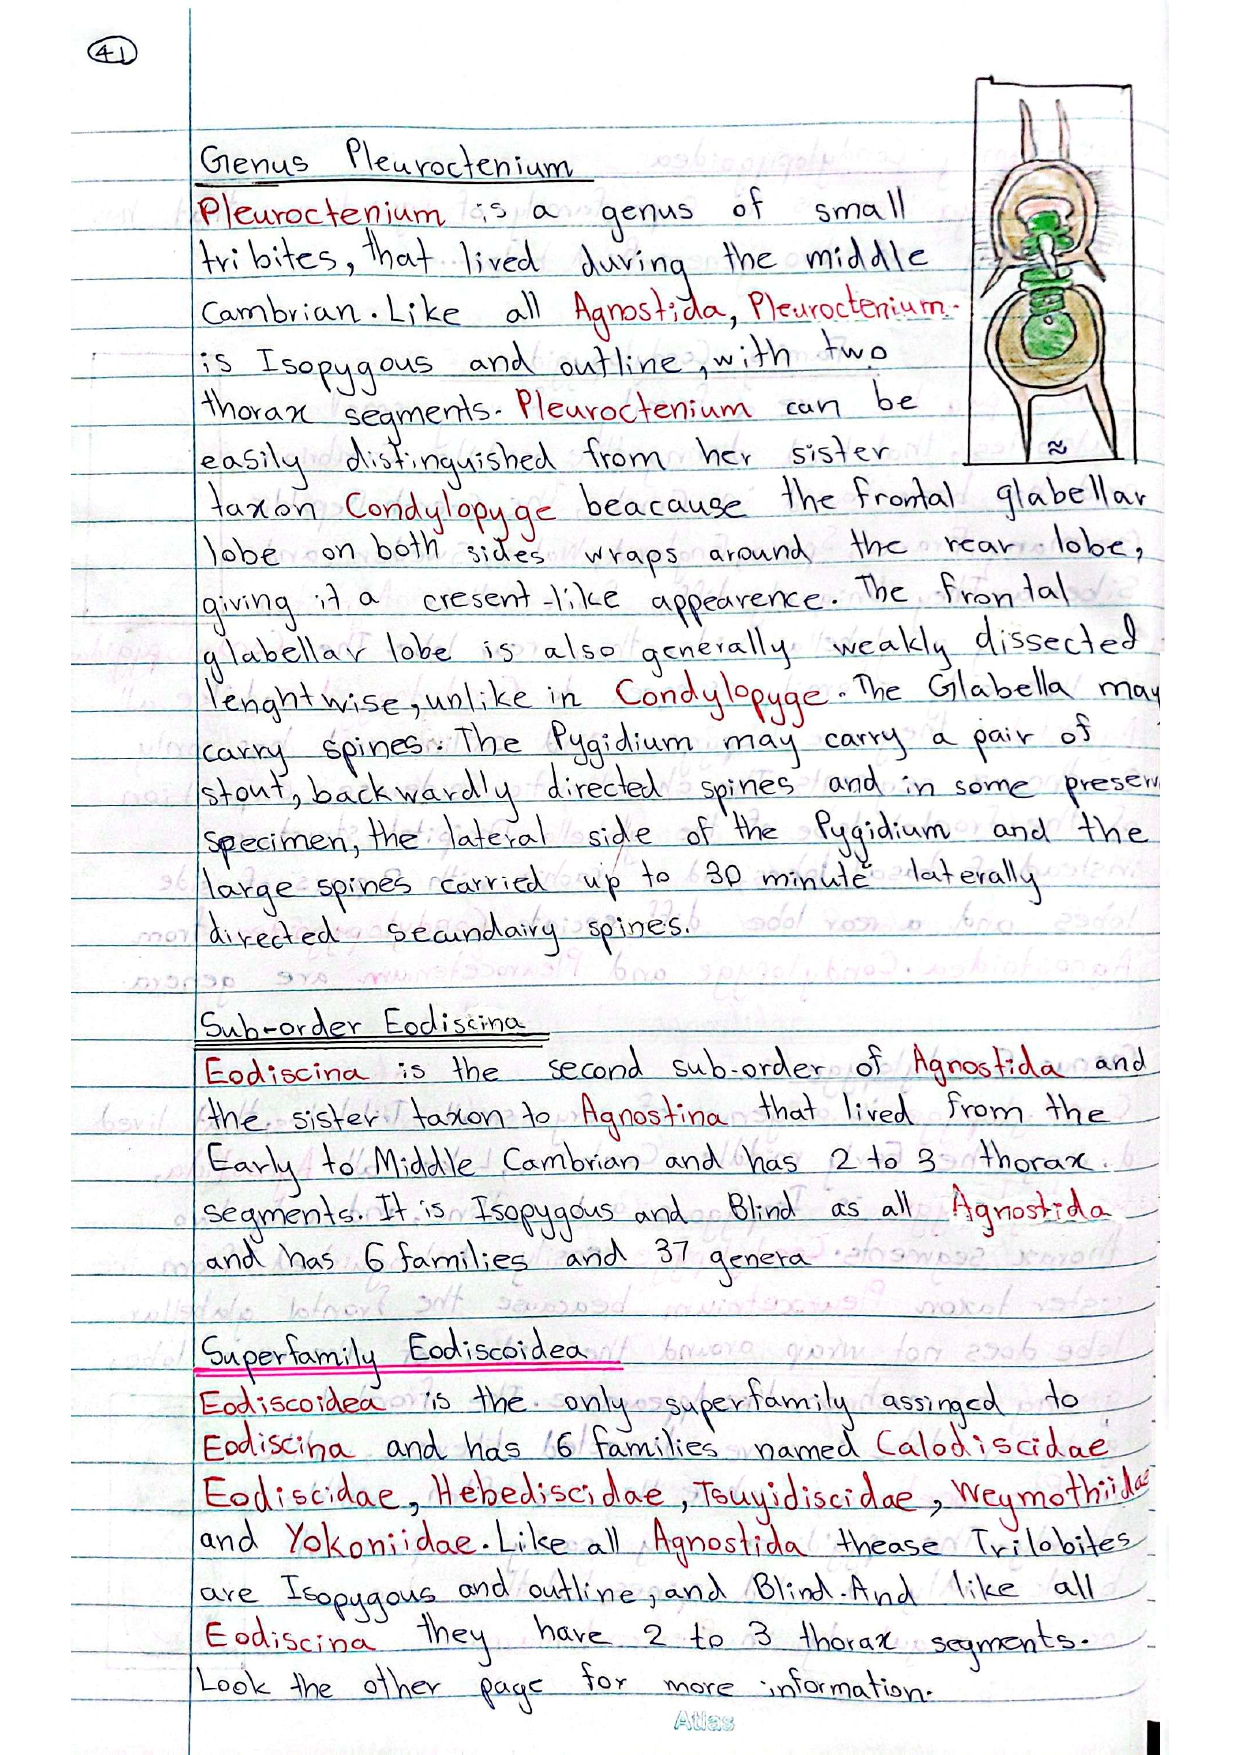 41
Genus Pleuroctenium
Pleuroctenium is a genus of small
tribites, that lived during the middle
Cambrian. Like all Agnostida, Pleuroctenium
is Isopygous and outline, with two
thorax segments. Pleuroctenium can be
easily distinguished from her sister
≈
taxon Condylopyge beacause the frontal glabellar
lobe on both sides wraps around the rear lobe,
giving it a cresent-like appearence. The frontal
glabellar lobe is also generally weakly dissected
lenghtwise, unlike in Condylopyge. The Glabella may
carry spines. The Pygidium may carry a pair of
stout, backwardly directed spines and in some preserv
specimen, the lateral side of the Pygidium and the
large spines carried up to 30 minute laterally
directed secundairy spines.
Sub-order Eodiscina
Eodiscina is the second sub-order of Agnostida and
the sister taxon to Agnostina that lived from the
Early to Middle Cambrian and has 2 to 3 thorax
segments. It is Isopygous and Blind as all Agnostida
and has 6 families and 37 genera
Superfamily Eodiscoidea
Eodiscoidea is the only superfamily assinged to
Eodiscina and has 6 families named Calodiscidae
Eodiscidae, Hebediscidae, Tsuyidiscidae, Weymothiidae
and Yokoniidae. Like all Agnostida thease Trilobites
are Isopygous and outline, and Blind. And like all
Eodiscina they have 2 to 3 thorax segments.
Look the other page for more information.
Atlas